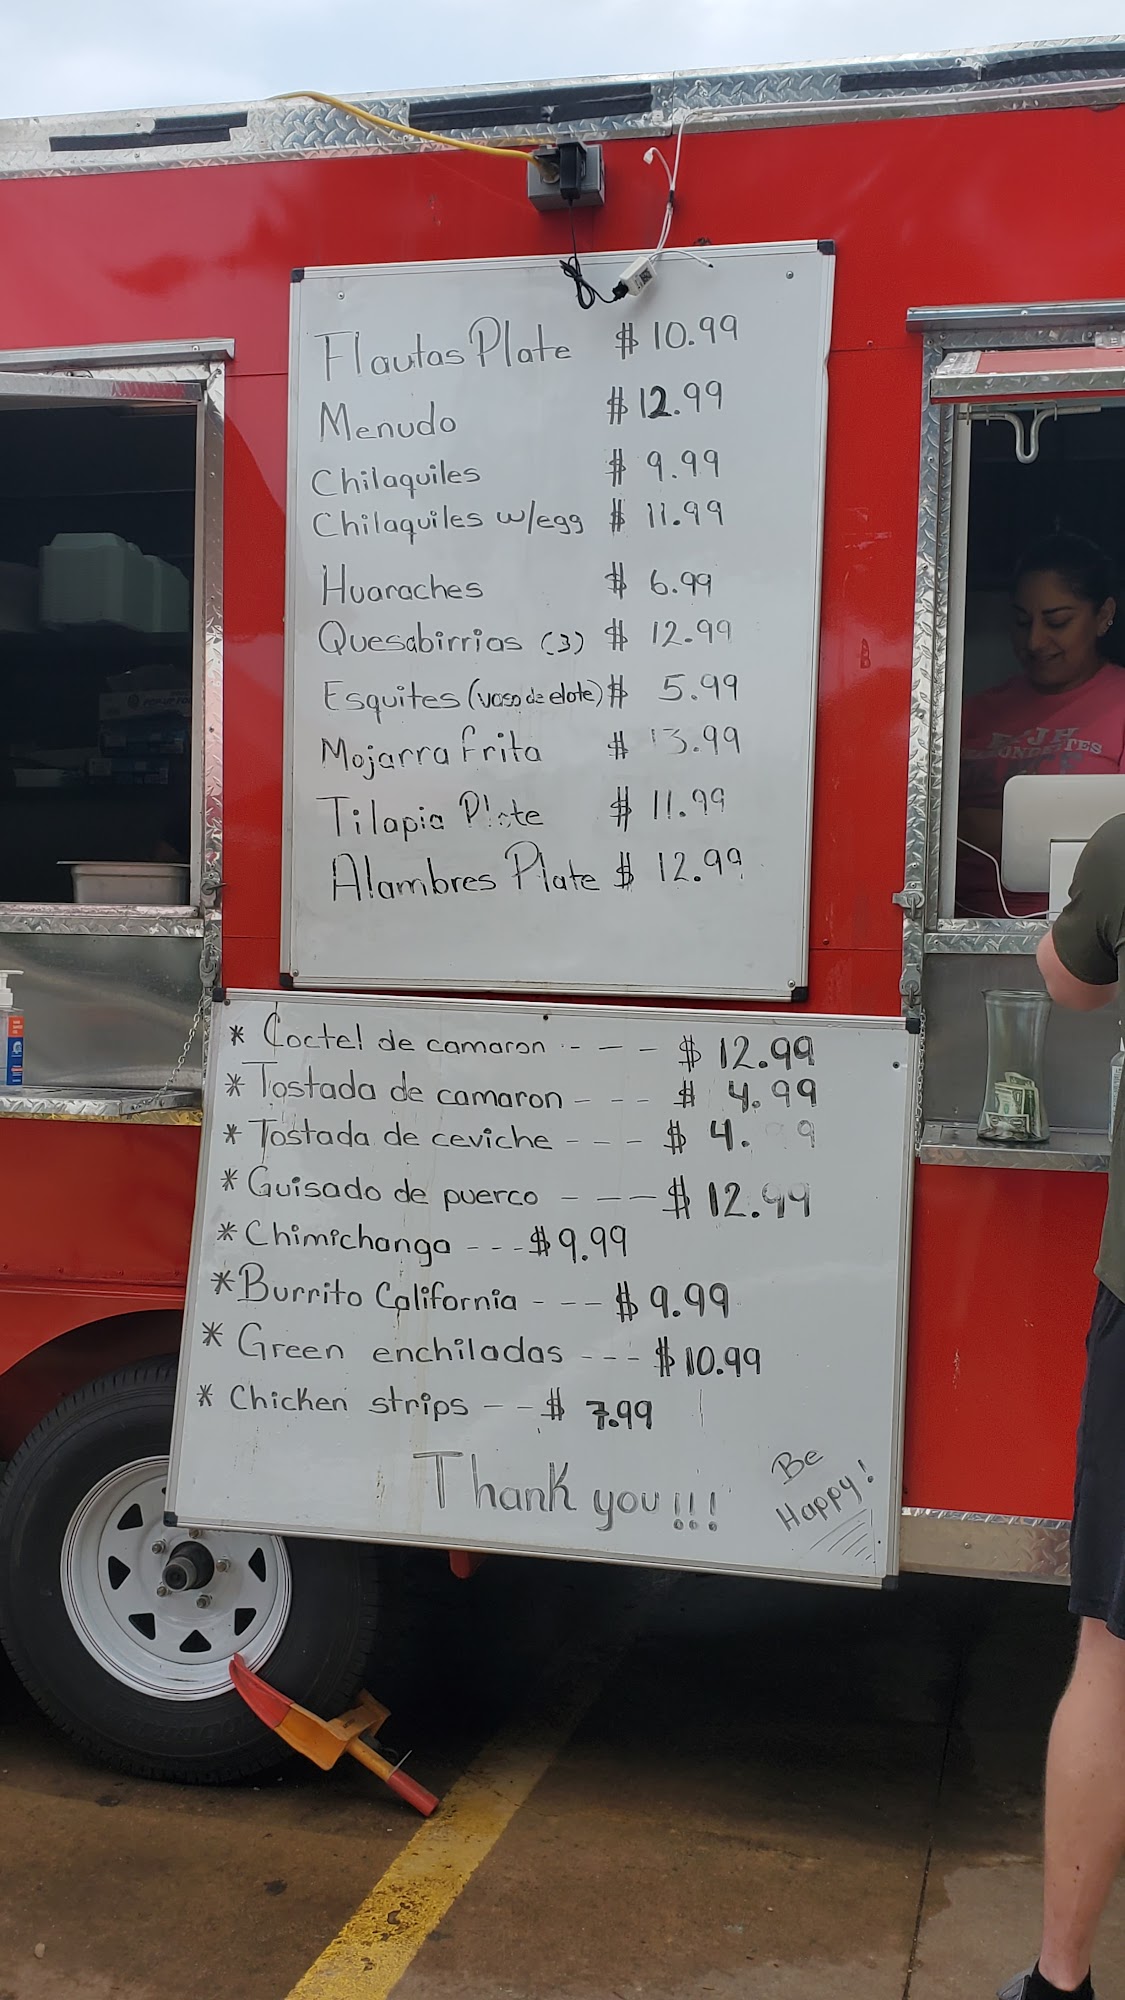 Flautas Plate $ 10.99
Menudo $ 12.99
Chilaquiles $ 9.99
Chilaquiles w/egg $ 11.99
Huaraches $ 6.99
Quesabirrias (3) $ 12.99
Esquites (vaso de elote) $ 5.99
Mojarra frita $ 13.99
Tilapia Plate $ 11.99
Alambres Plate $ 12.99
* Coctel de camaron - - - $ 12.99
* Tostada de camaron - - - $ 4.99
* Tostada de ceviche - - - $ 4. 9
* Guisado de puerco - - - $ 12.99
* Chimichanga - - - $ 9.99
* Burrito California - - - $ 9.99
* Green enchiladas - - - $ 10.99
* Chicken strips - - $ 7.99
Thank you!!!
Be
Happy!